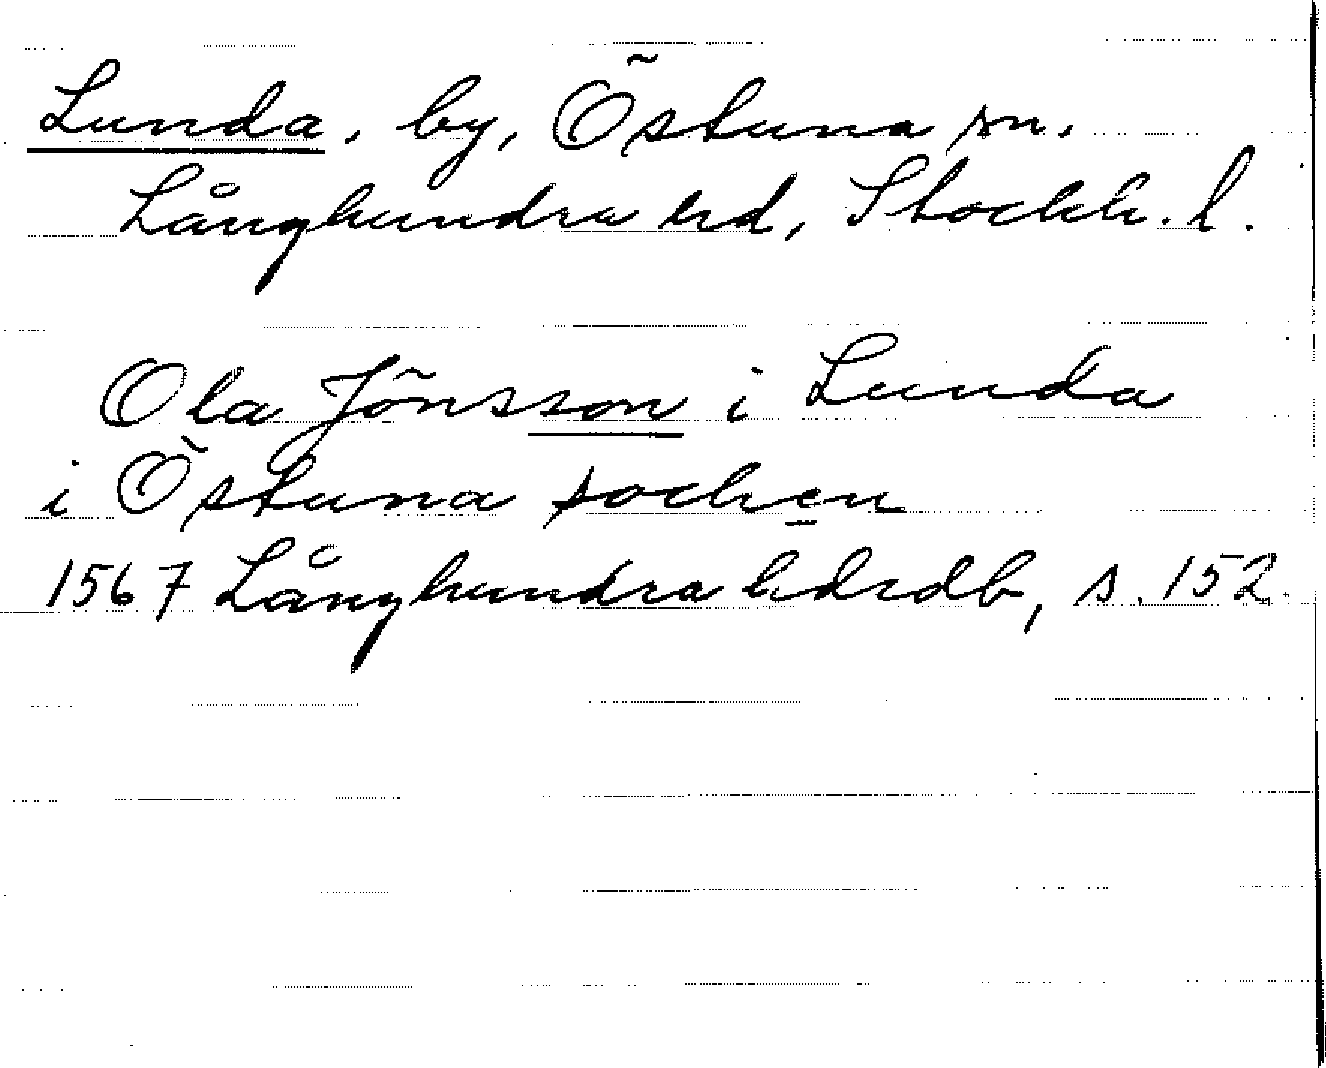 Lunda, by, Östuna sn.
Långhundra hd, Stockh. l.
Ola Jönsson i Lunda
i Östuna sochen
1567 Långhundra hdrdb, s. 152.